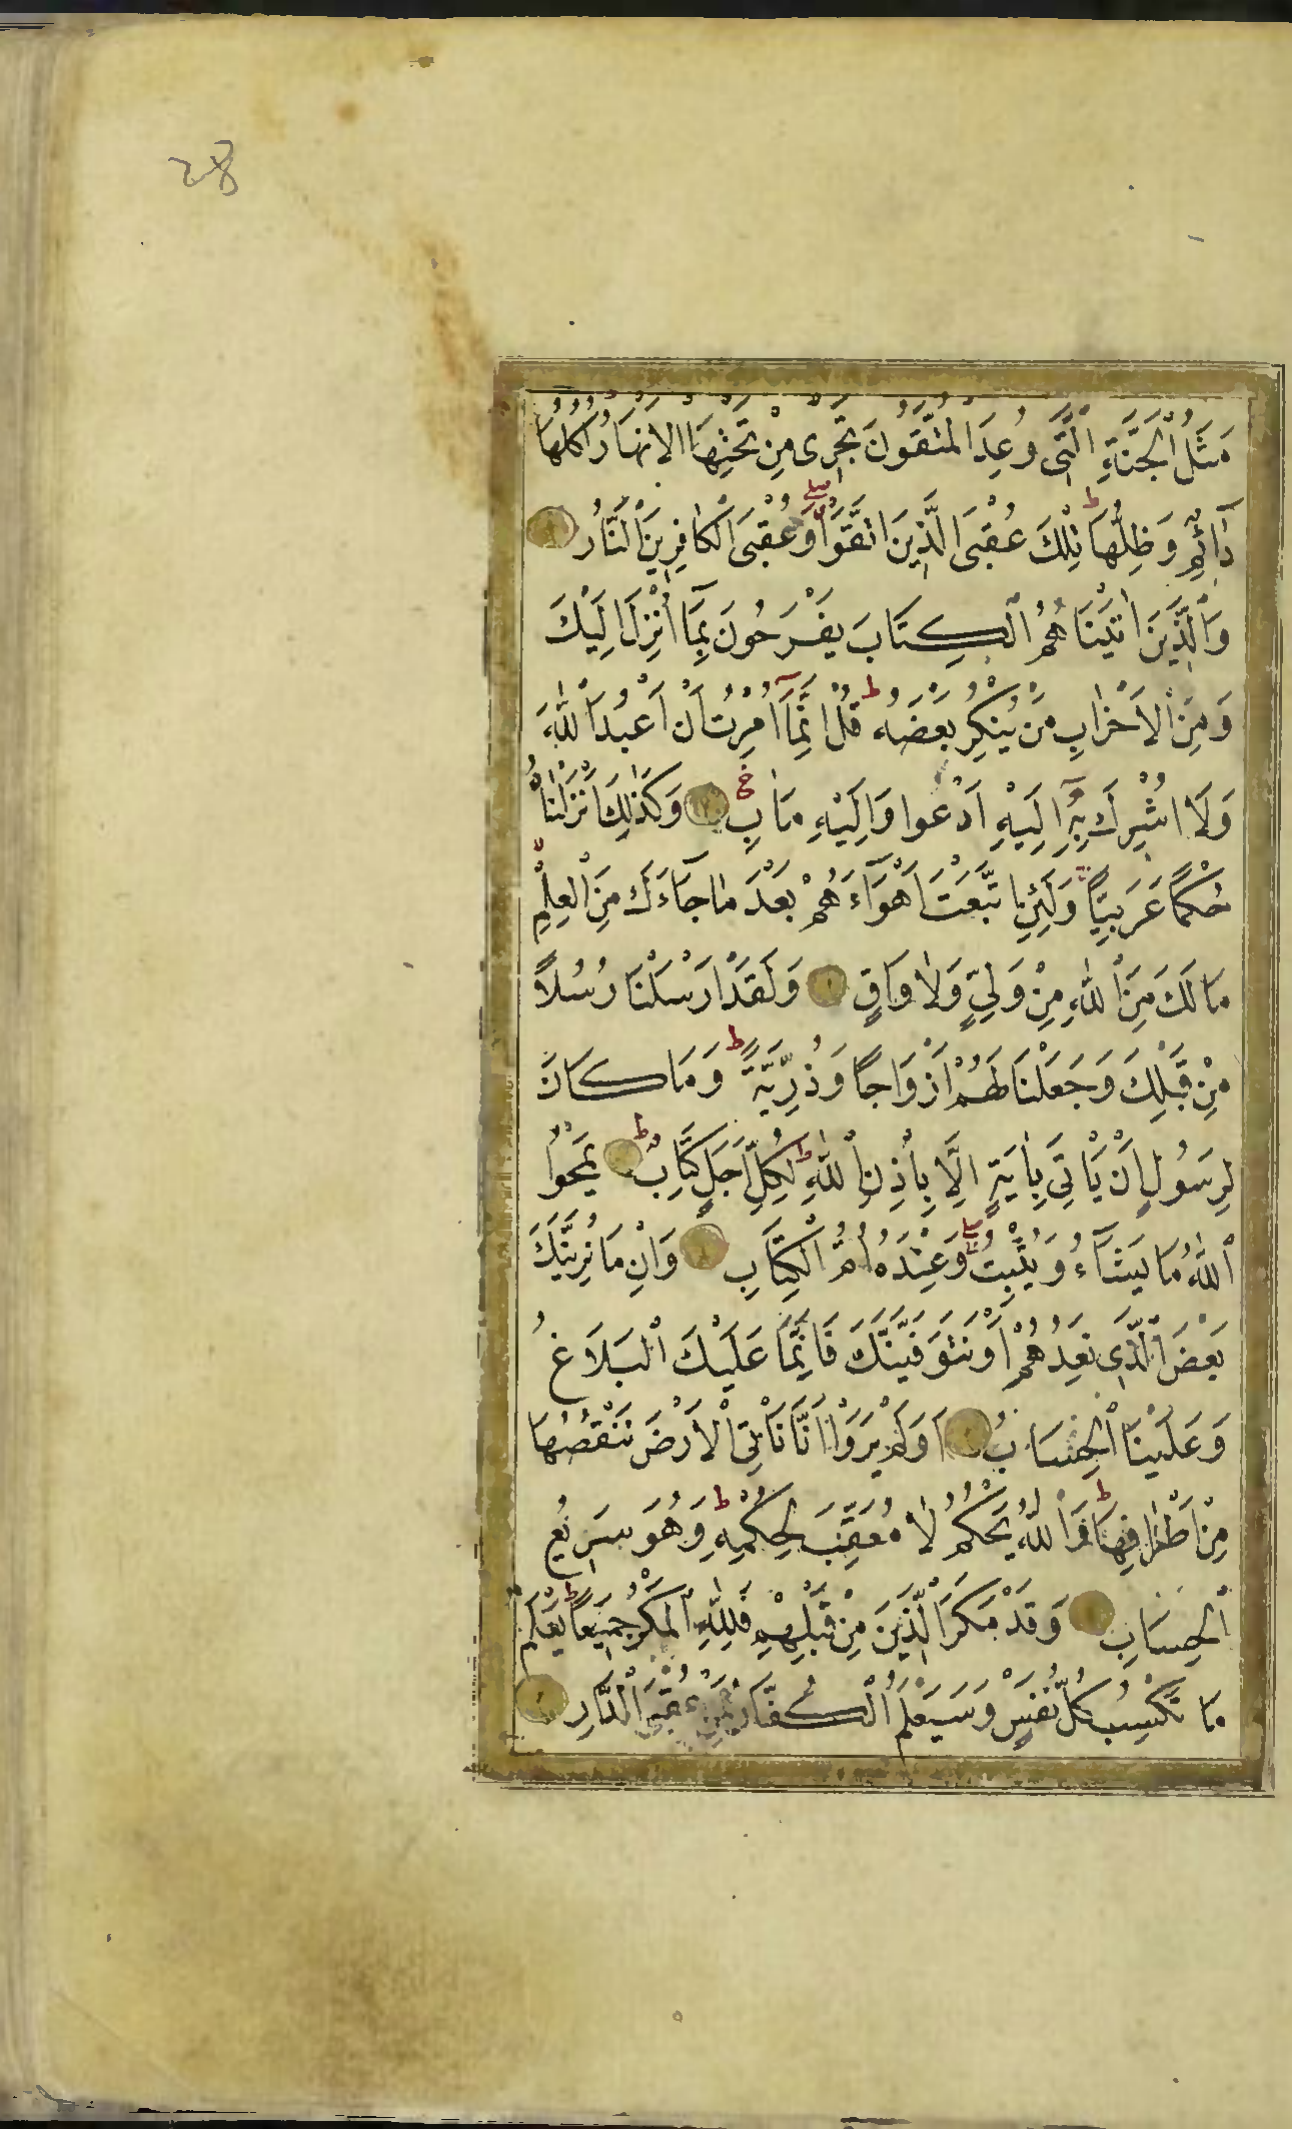 28
مَثَلُ الْجَنَّةِ الَّتِي وُعِدَ الْمُتَّقُونَ تَجْرِي مِنْ تَحْتِهَا الْاَنْهَارُ اُكُلُهَا
دَآئِمٌ وَظِلُّهَا ط تِلْكَ عُقْبَى الَّذِينَ اتَّقَوْا صلے وَعُقْبَى الْكَافِرِينَ النَّارُ
وَالَّذِينَ اٰتَيْنَاهُمُ الْكِتَابَ يَفْرَحُونَ بِمَآ اُنْزِلَ اِلَيْكَ
وَمِنَ الْاَحْزَابِ مَنْ يُنْكِرُ بَعْضَهُ ط قُلْ اِنَّمَآ اُمِرْتُ اَنْ اَعْبُدَ اللّٰهَ
وَلَا اُشْرِكَ بِهِ اِلَيْهِ اَدْعُوا وَاِلَيْهِ مَاٰبِ وَكَذٰلِكَ اَنْزَلْنَاهُ
حُكْمًا عَرَبِيًّا وَلَئِنِ اتَّبَعْتَ اَهْوَآءَهُمْ بَعْدَ مَا جَآءَكَ مِنَ الْعِلْمِ
مَا لَكَ مِنَ اللّٰهِ مِنْ وَلِيٍّ وَلَا وَاقٍ وَلَقَدْ اَرْسَلْنَا رُسُلًا
مِنْ قَبْلِكَ وَجَعَلْنَا لَهُمْ اَزْوَاجًا وَذُرِّيَّةً ط وَمَا كَانَ
لِرَسُولٍ اَنْ يَاْتِيَ بِاٰيَةٍ اِلَّا بِاِذْنِ اللّٰهِ ط لِكُلِّ اَجَلٍ كِتَابٌ ط يَمْحُوا
اللّٰهُ مَا يَشَآءُ وَيُثْبِتُ صلے وَعِنْدَهُ اُمُّ الْكِتَابِ وَاِنْ مَا نُرِيَنَّكَ
بَعْضَ الَّذِي نَعِدُهُمْ اَوْ نَتَوَفَّيَنَّكَ فَاِنَّمَا عَلَيْكَ الْبَلَاغُ
وَعَلَيْنَا الْحِسَابُ اَوَلَمْ يَرَوْا اَنَّا نَاْتِي الْاَرْضَ نَنْقُصُهَا
مِنْ اَطْرَافِهَا ط وَاللّٰهُ يَحْكُمُ لَا مُعَقِّبَ لِحُكْمِهِ ط وَهُوَ سَرِيعُ
الْحِسَابِ وَقَدْ مَكَرَ الَّذِينَ مِنْ قَبْلِهِمْ فَلِلّٰهِ الْمَكْرُ جَمِيعًا ط يَعْلَمُ
مَا تَكْسِبُ كُلُّ نَفْسٍ وَسَيَعْلَمُ الْكُفَّارُ لِمَنْ عُقْبَى الدَّارِ